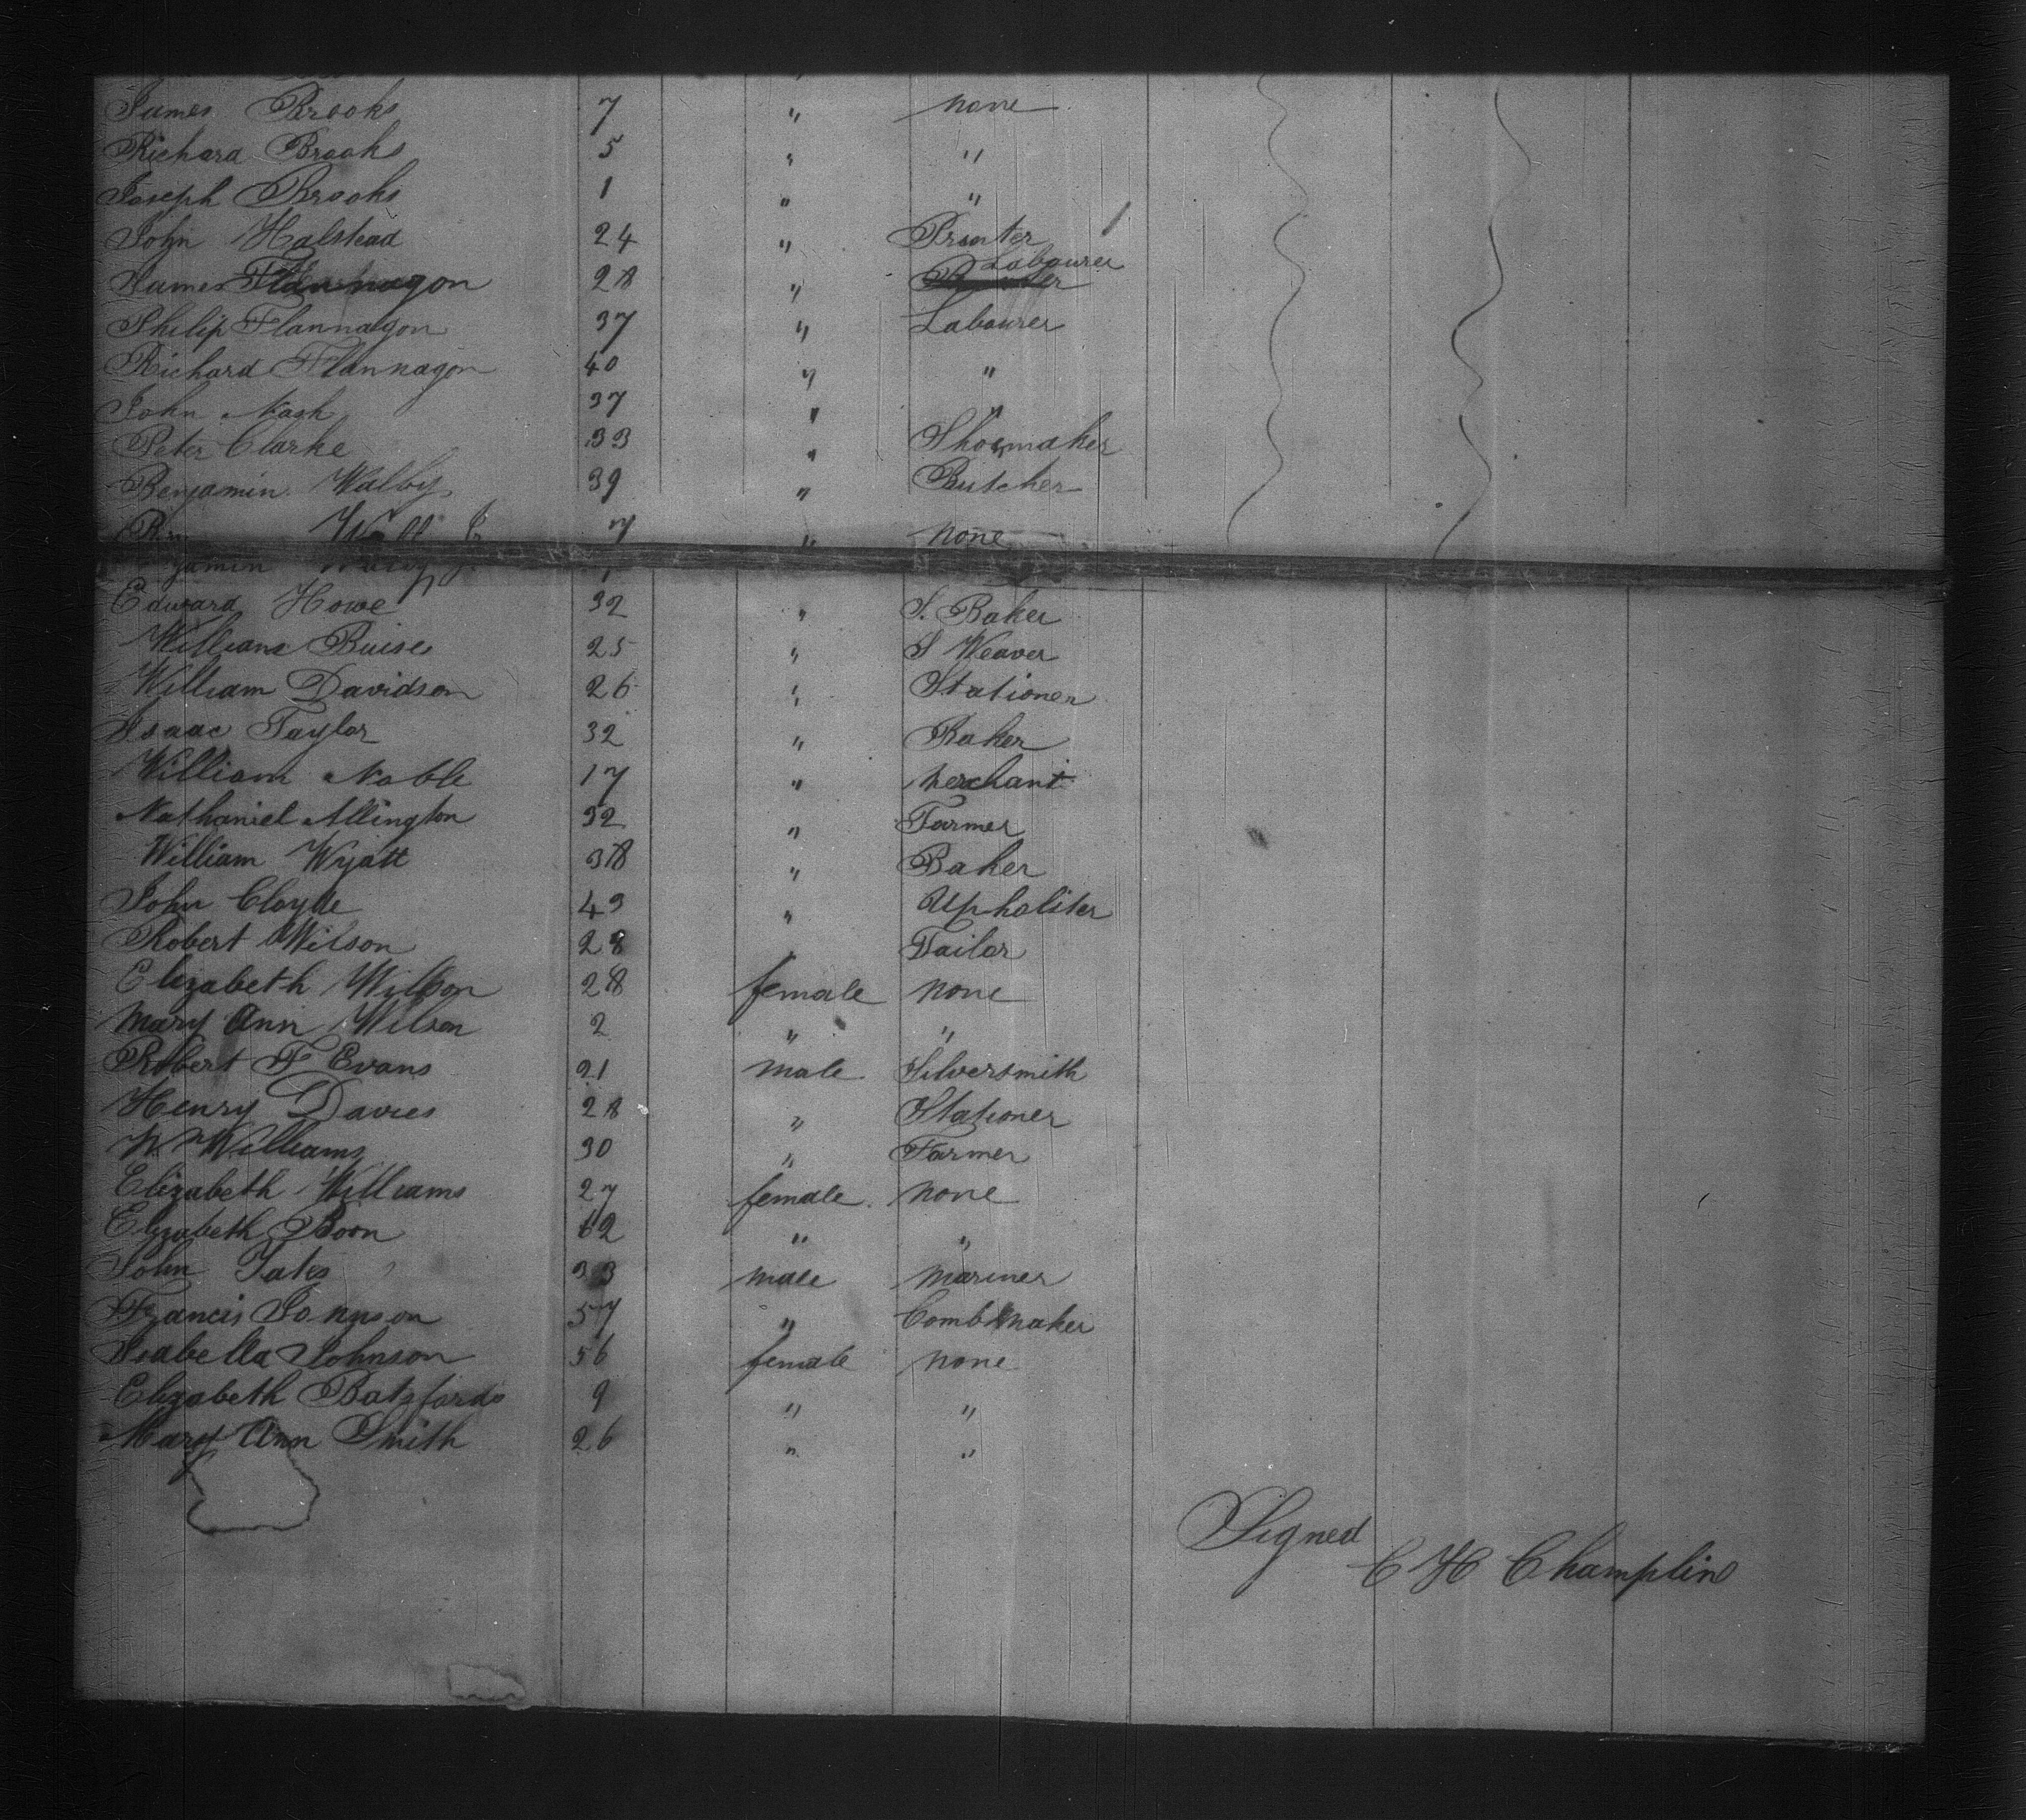 James Brooks 7 " none
Richard Brooks 5 " "
Joseph Brooks 1 " "
John Halstead 24 " Printer
James Flannagon 28 " Labourer
Philip Flannagon 37 " Labourer
Richard Flannagon 40 " "
John Nash 37 " "
Peter Clarke 33 " Shoemaker
Benjamin Walby 39 " Butcher
Benjamin Walby Jr 7 " none
Edward Howe 32 " S. Baker
William Buise 25 " S Weaver
William Davidson 26 " Stationer
Isaac Taylor 32 " Baker
William Noble 17 " merchant
Nathaniel Allington 32 " Farmer
William Wyatt 38 " Baker
John Cloyde 43 " Upholster
Robert Wilson 28 " Tailor
Elizabeth Wilson 28 female none
Mary Ann Wilson 2 " "
Robert F Evans 21 male Silversmith
Henry Davies 28 " Stationer
W. Williams 30 " Farmer
Elizabeth Williams 27 female none
Elizabeth Boon 62 " "
John Yates 33 male mariner
Francis Johnson 57 " Combmaker
Isabella Johnson 56 female none
Elizabeth Batsford 9 " "
Mary Ann Smith 26 " "
Signed
C H Champlin